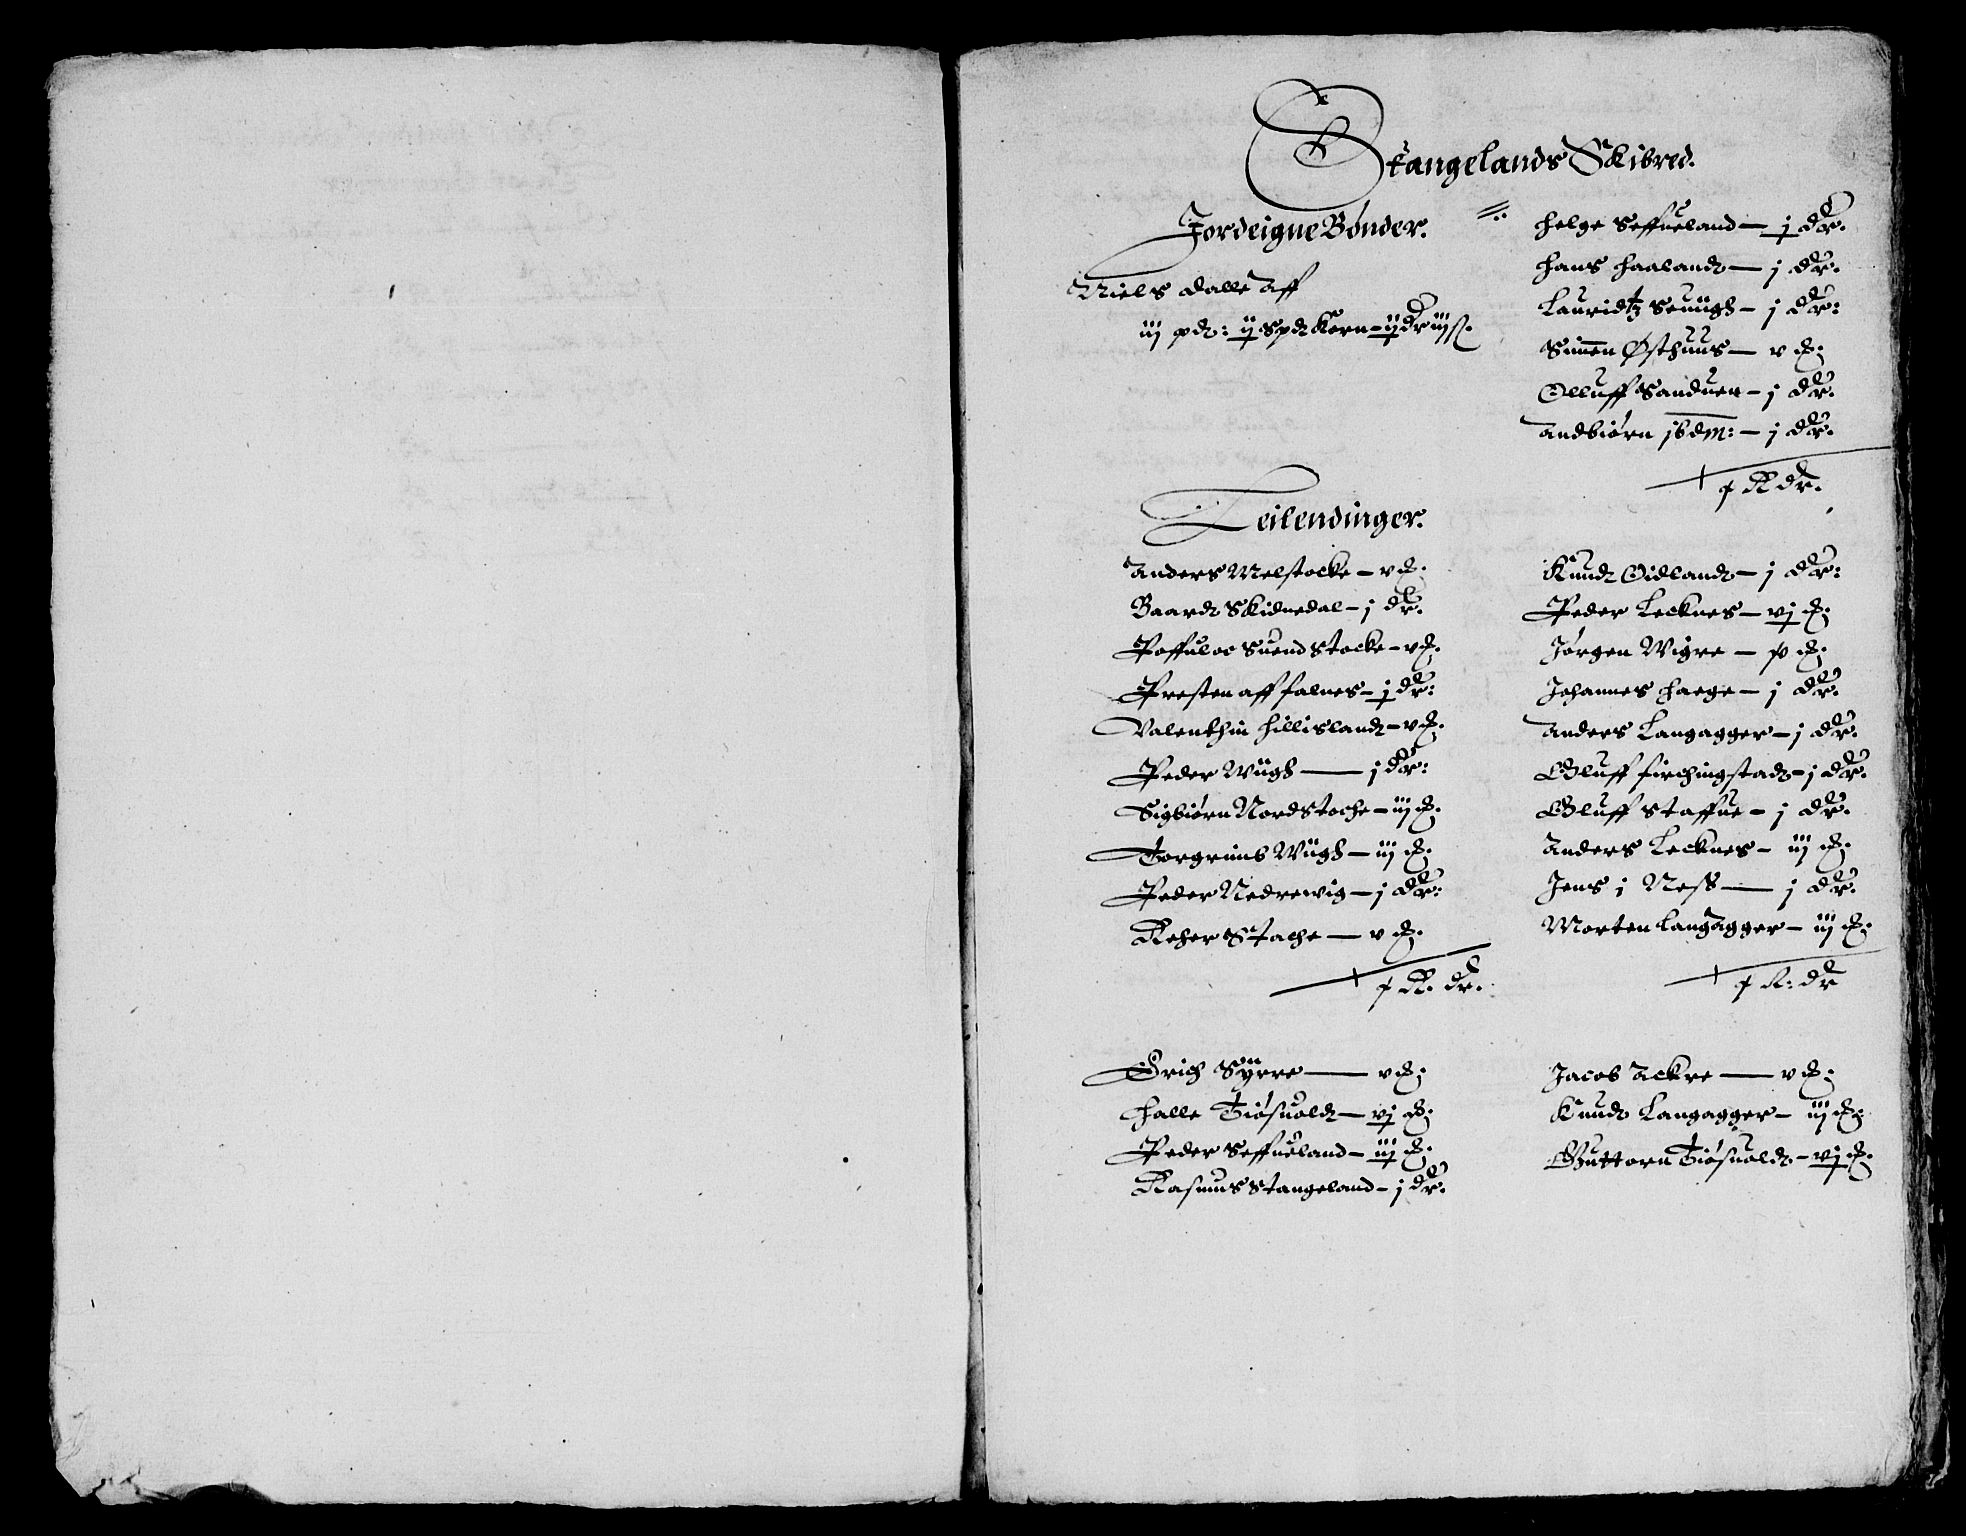 Stangelands Skibred.
Jordeigne Bønder.
Niels Dalle Aff
iij pd: ij Spd Korn - ij dr iij ß.
Helge Seffueland — j dr.
Hans Haaland — j dr.
Lauridtz Seuugh — j dr:
Simen Østhuus — v
Olluff Sanduen — j dr.
Andbiørn ibdm: — j dr.
dr.
Leilendinger.
Anders Melstocke — v
Baard Skidnedal — j dr.
Poffuloc Suendstocke — v
Presten aff Falnes — j dr:
Valenthin Hillisland — v
Peder Wiigh — j dr:
Sigbiørn Nordstoche — iij
Torgrimb Wiigh — iij
Peder Nedrewig — j dr:
Reher Stache — v
dr.
Knud Øidland — j dr:
Peder Lecknes — vj
Jørgen Wigre —
Johannes Haege — j dr.
Anders Langagger — j dr.
Oluff Firchingstad — j dr.
Oluff Staffue — j dr.
Anders Lecknes — iij
Jens j Ness — j dr.
Morten Langagger — iij
dr
Erich Syrre — v
Halle Tiøsuold — vj
Peder Seffueland — iij
Rasmus Stangeland — j dr.
Jacob Ackre — v
Knud Langagger — iij
Guttorn Tiøsuold — vj